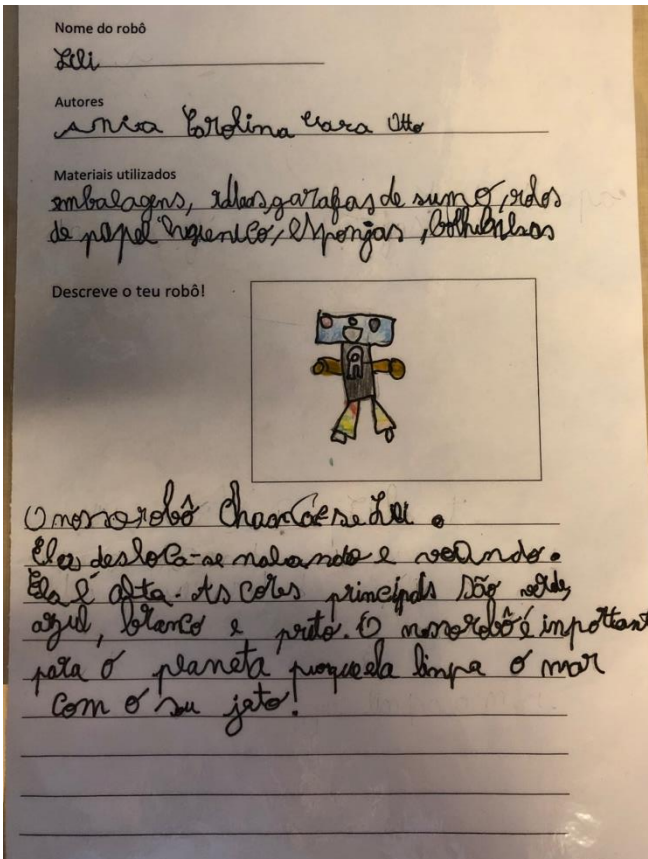 Nome do robô
Lili
Autores
Carolina Otto
Materiais utilizados
embalagens, garafas de sumo, rolos
de papel higienico, esponjas,
Descreve o teu robô!
O nosso robô
Ela desloca-se nadando e voando.
Ela é alta. As cores principals são verde,
azul, branco e preto. O nosso robô é important
para o planeta porque ela limpa o mar
com o seu jato!